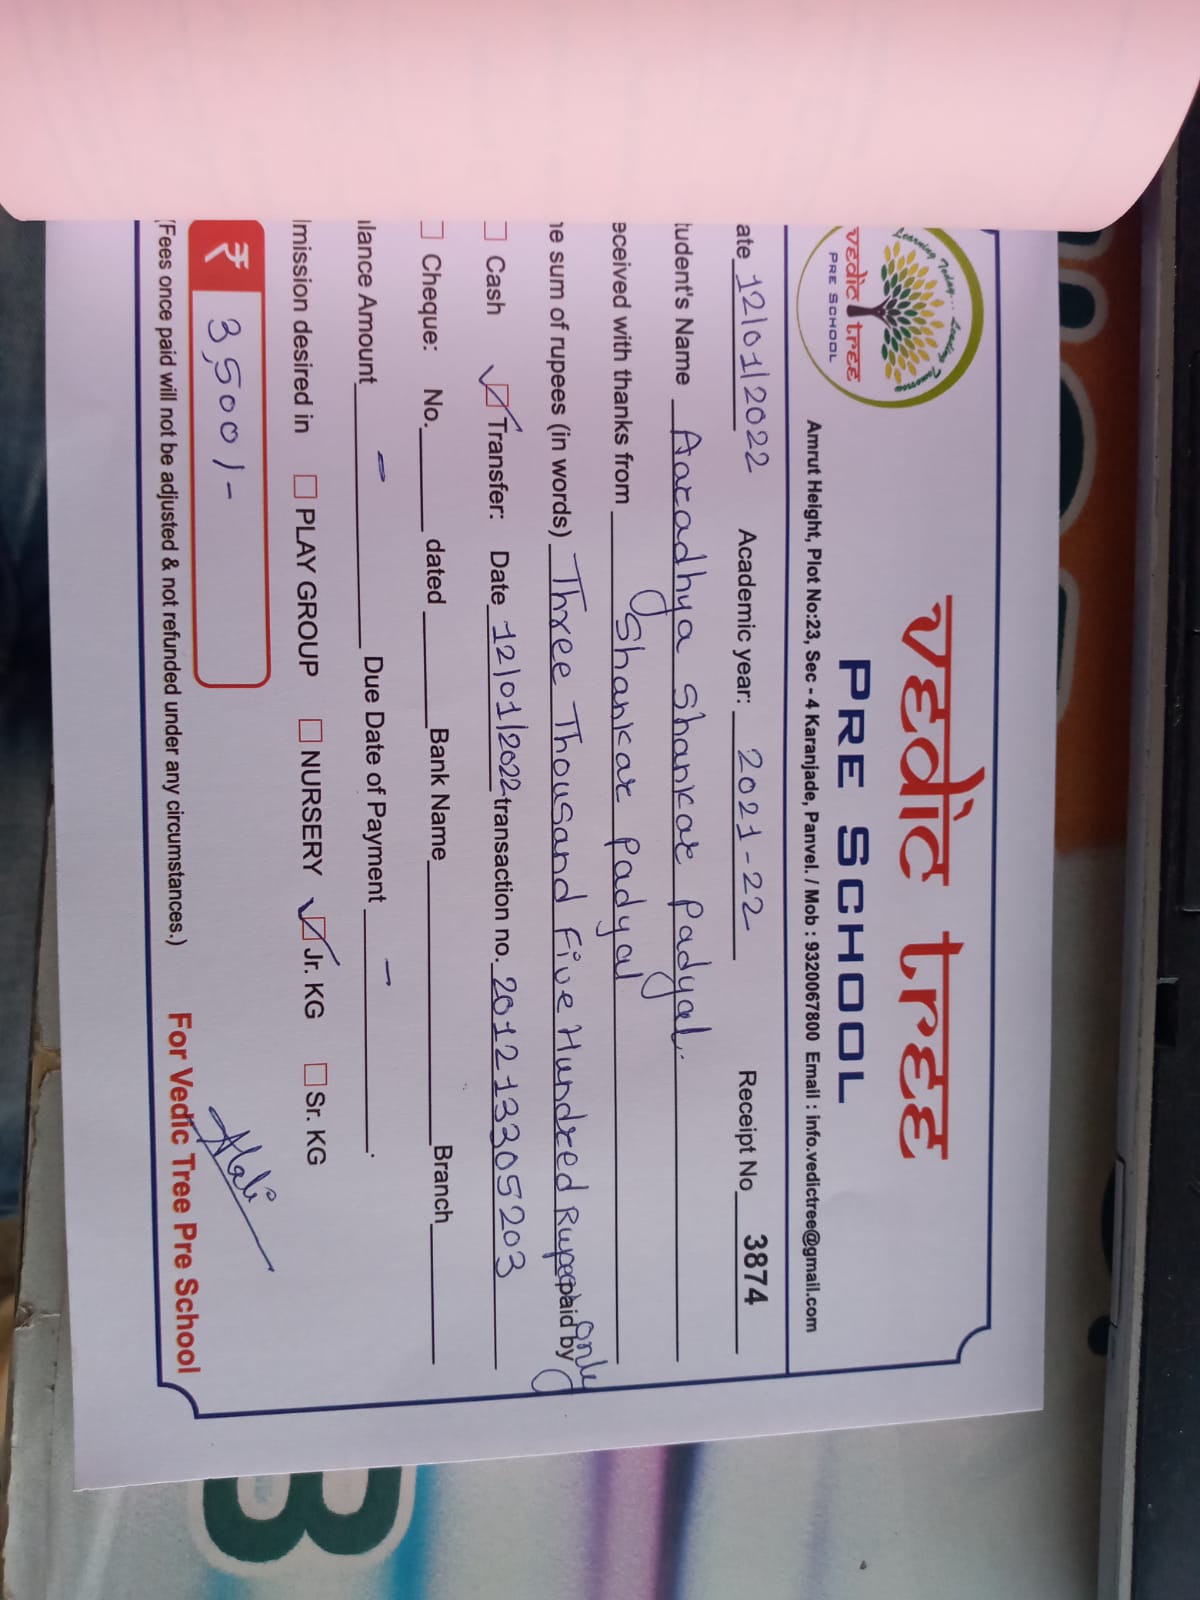 Learning Today... Leading Tomorrow
vedic tree
PRE SCHOOL
vedic tree
PRE SCHOOL
Amrut Height, Plot No:23, Sec - 4 Karanjade, Panvel. / Mob : 9320067800 Email : info.vedictree@gmail.com
ate 12/01/2022 Academic year: 2021-22 Receipt No 3874
tudent's Name Aaradhya Shankar Padyal.
eceived with thanks from Shankar Padyal
ne sum of rupees (in words) Three Thousand Five Hundred Rupees only paid by
Cash ✓ Transfer: Date 12/01/2022 transaction no. 201213305203
Cheque: No. dated Bank Name Branch
lance Amount - Due Date of Payment - .
lmission desired in PLAY GROUP NURSERY ✓ Jr. KG Sr. KG
₹ 3,500/-
(Fees once paid will not be adjusted & not refunded under any circumstances.) For Vedic Tree Pre School